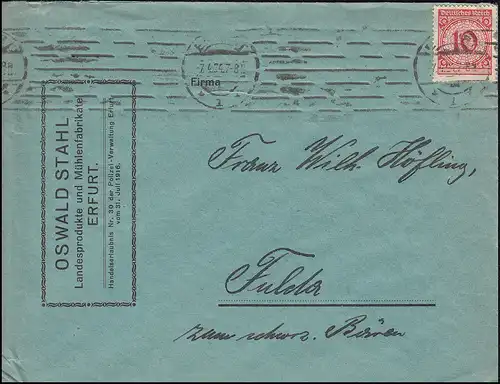 Deutsches Reich
10
-7.4.24.7-8N
1
Firma
OSWALD STAHL
Landesprodukte und Mühlenfabrikate
ERFURT.
Handelserlaubnis Nr. 30 der Polizei-Verwaltung Erfurt
vom 31. Juli 1916.
Franz Wilh. Höfling,
Fulda
zum schwz. Bären